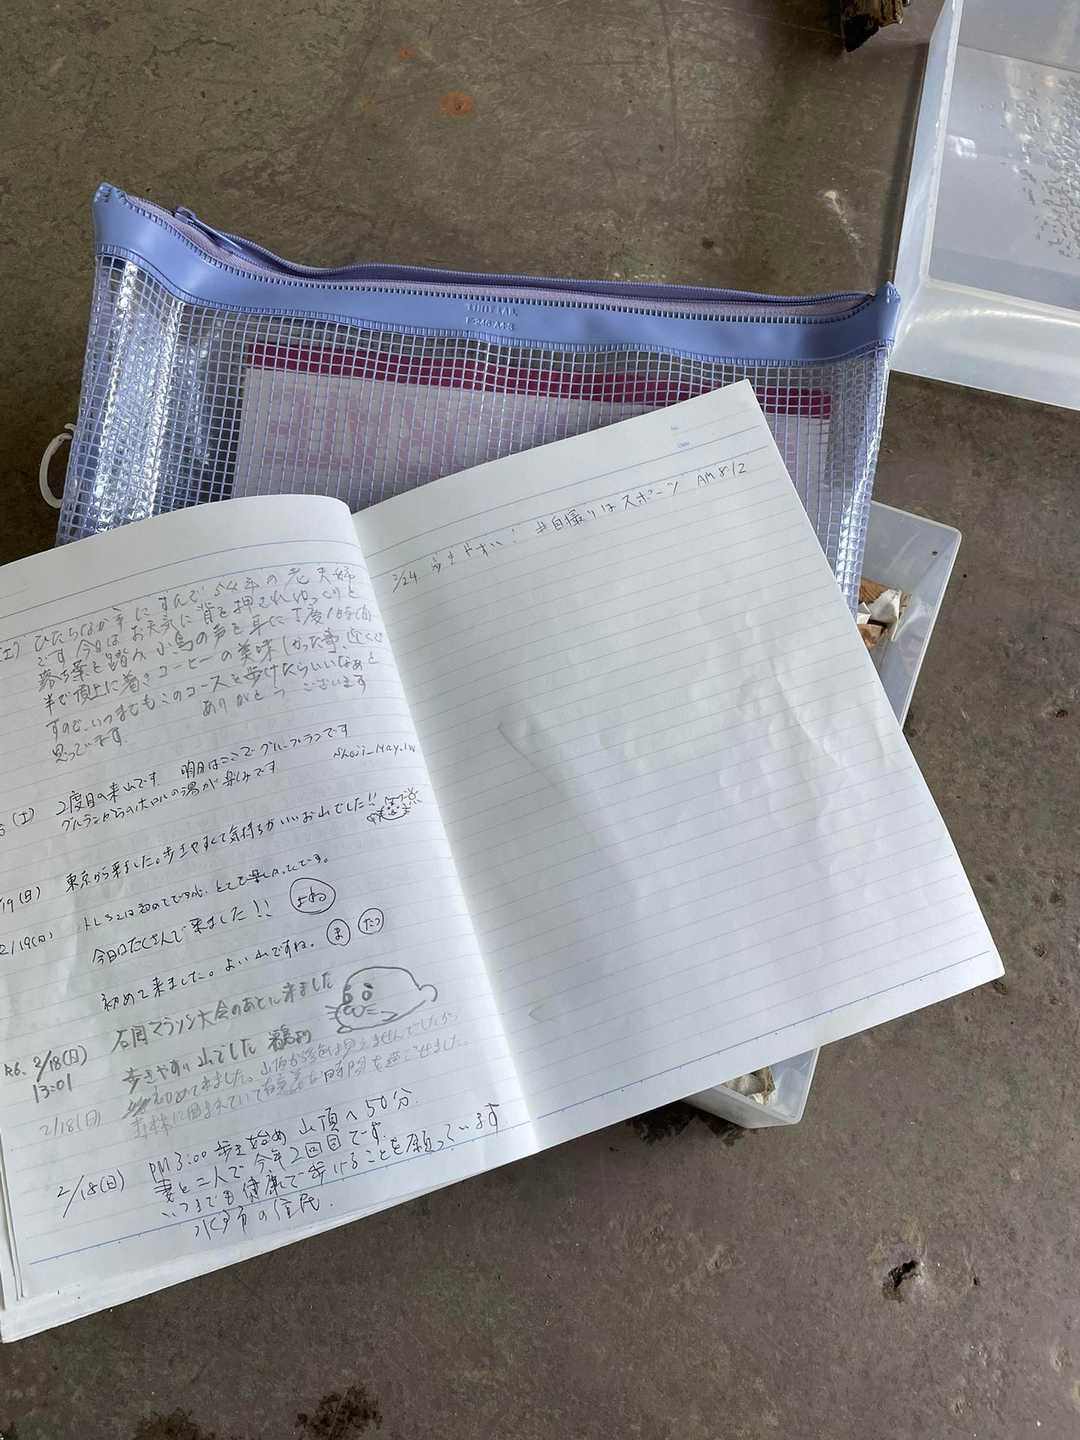 (土) ひたちなか市にすんで54年の老夫婦
です 今日はお天気に背を押されゆっくりと
落ち葉を踏み 小鳥の声を耳に 丁度1時間
半で頂上に着きコーヒーの美味しかった事、近くで
すので、いつまでもこのコースを歩けたらいいなぁと
思っています ありがとうございます
(土) 2度目の来山です 明日はここでグループランです
が楽しみです
/19(日) 東京から来ました。歩きやすくて気持ちがいいお山でした!!
2/19(日) トレランは初めてですが、とても楽しかったです。
今日はたくさんで来ました!! よね
初めて来ました。よい山ですね。 ま たつ
R6. 2/18(日) 石岡マラソン大会のあとに来ました
13:01 歩きやすい山でした
2/18(日) 初めてきました。山頂から景色は見えませんでしたが
森林に囲まれていて有意義な時間を過ごせました。
2/18(日) PM3:00 歩き始め 山頂へ50分.
妻と二人で今年2回目です.
いつまでも健康で歩けることを願っています
水戸市の住民.
2/24. 歩きやすい! #自撮りはスポーツ AM8:12